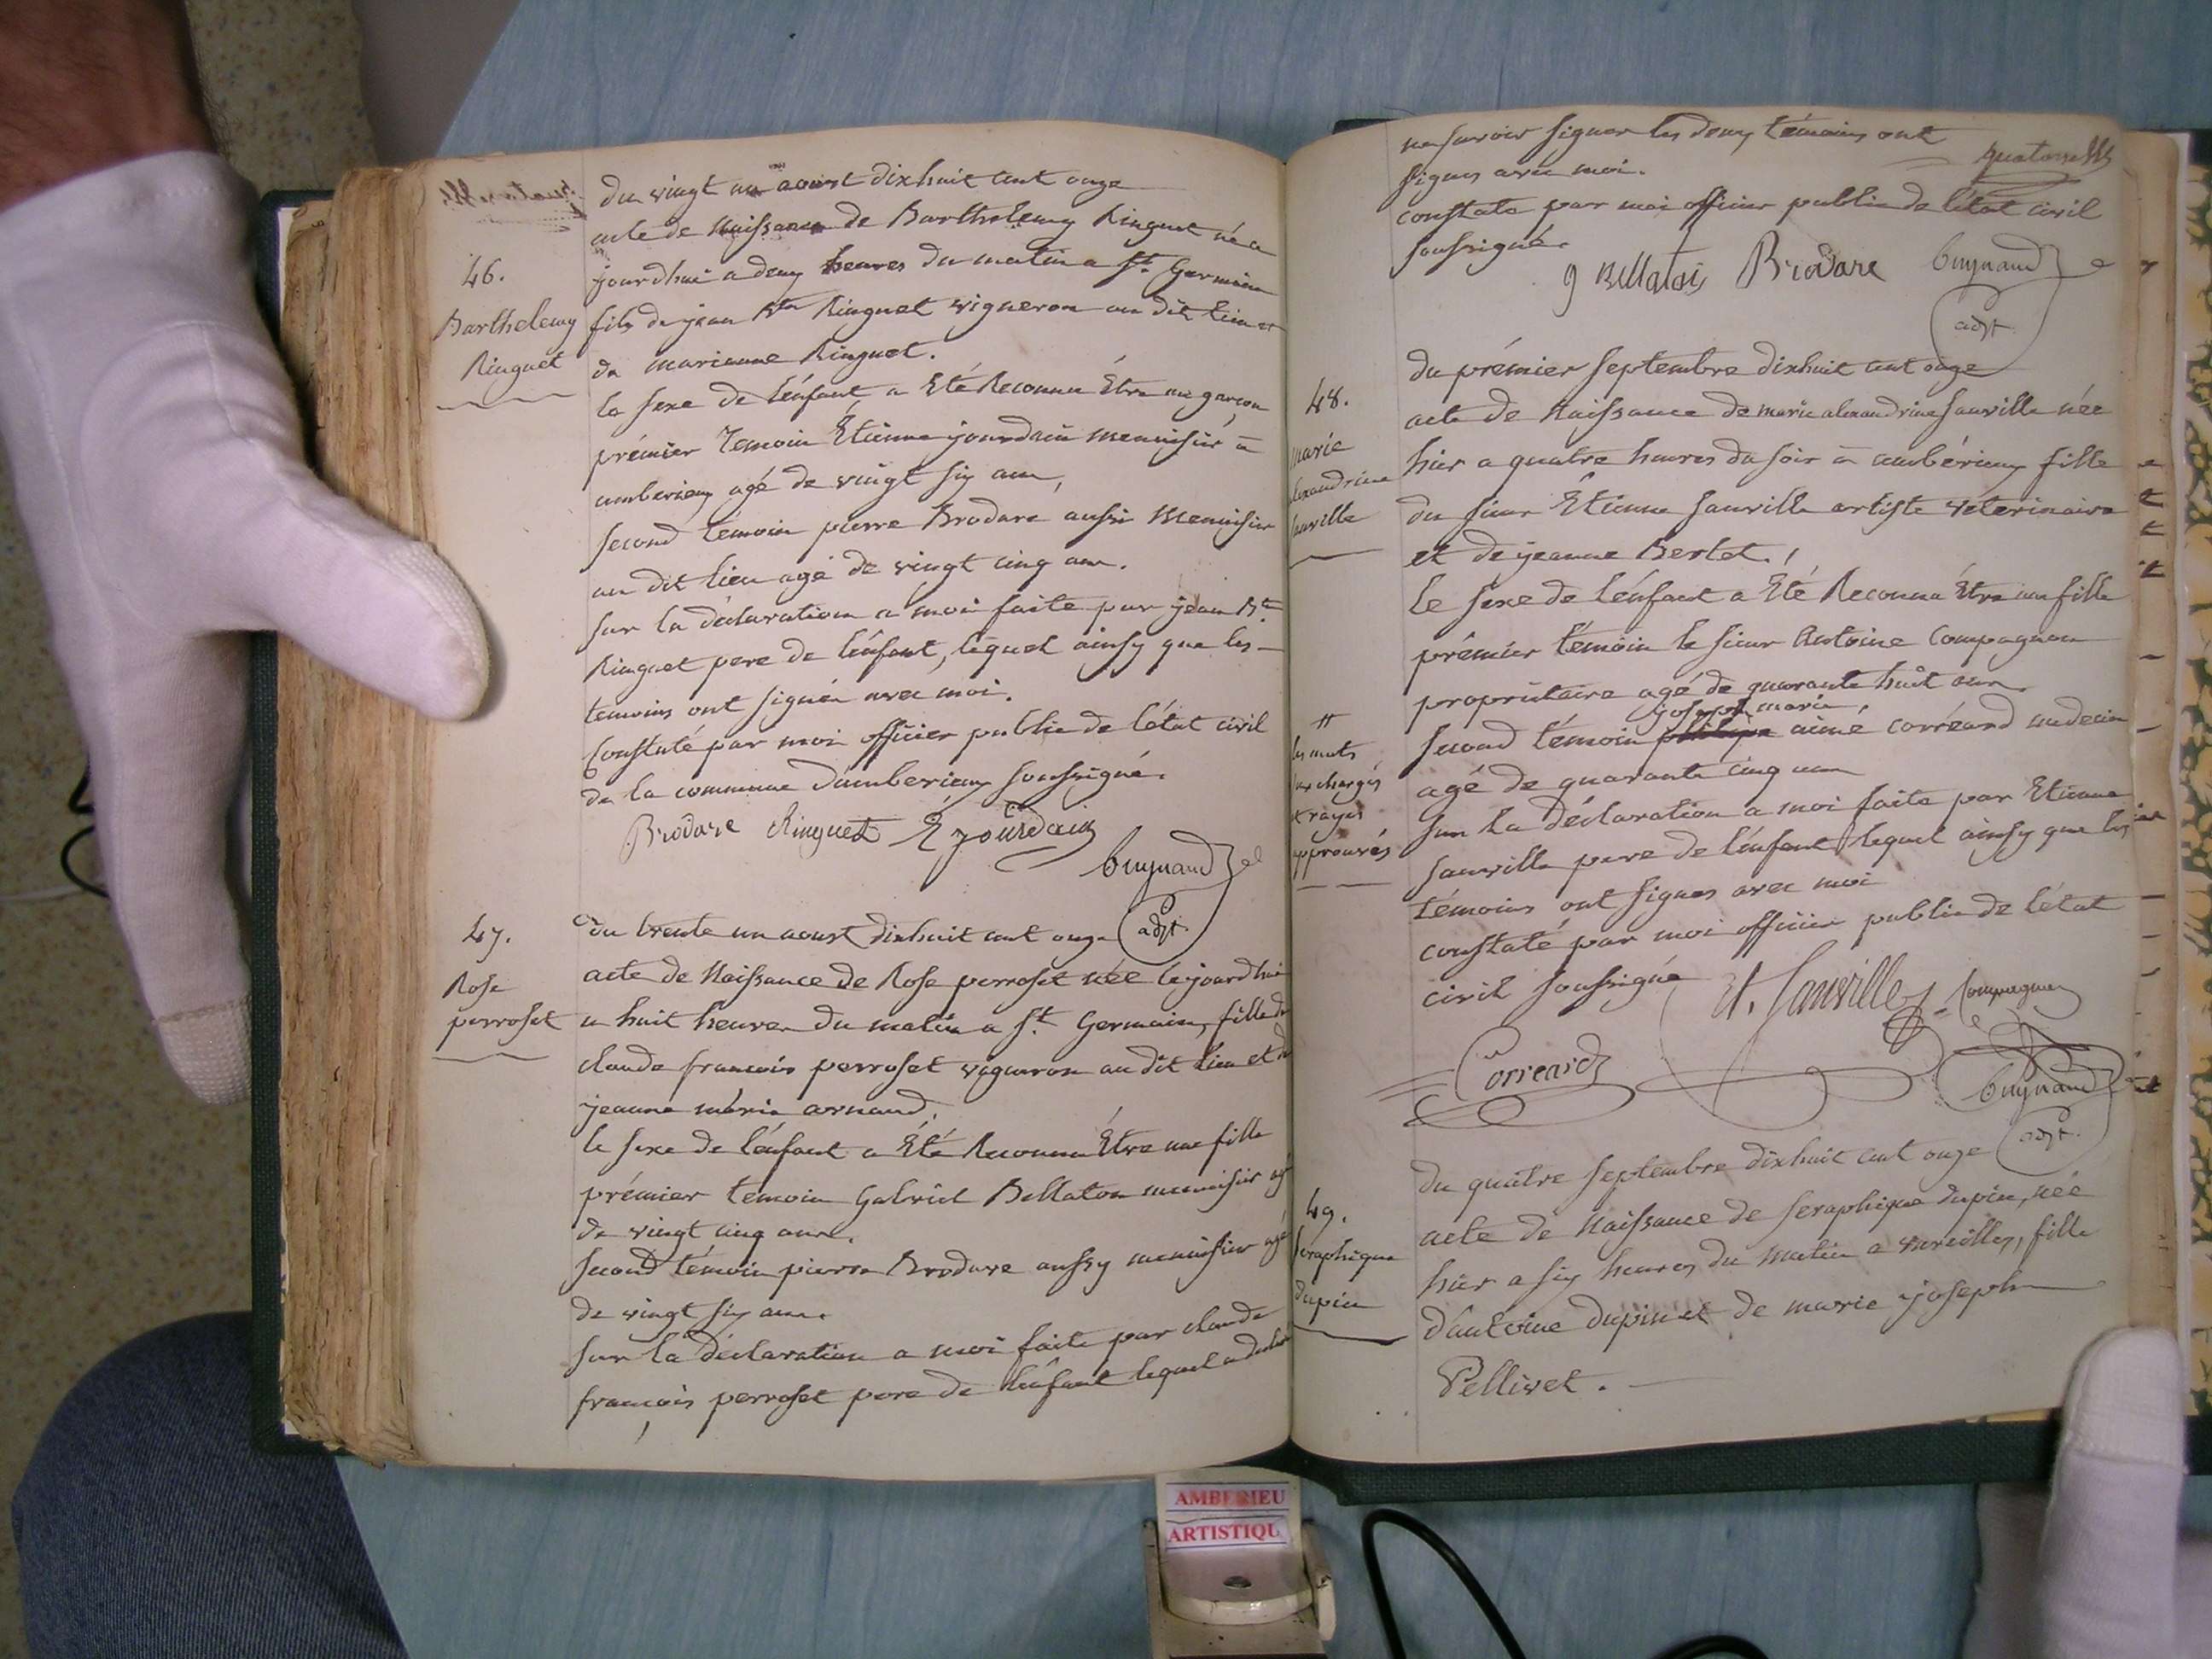 du vingt un aoust dixhuit cent onze
acte de Naissance de Barthelemy Ringuet né a
46.
jourdhui a deux heures du matin a St. Germain
Barthelemy
Ringuet
fils de jean Bte Ringuet vigneron au dit lieu et
de marianne Ringuet.
le sexe de l'énfant a Eté Reconnu Être un garçon
prémier Temoin Étienne jourdain menuisier à
amberieux agé de vingt six ans,
second temoin pierre Brodare aussi Menuisier
au dit lieu agé de vingt cinq ans.
sur la déclaration a moi faite par jean Bte.
Ringuet pere de l'énfant, lequel ainsy que les
temoins ont signés avec moi.
Constaté par moi officier public de l'état civil
de la commune d'amberieux soussigné.
Brodare Ringuet E jourdain
Cuynaud
adjt.
47.
Rose
perroset
du trente un aoust dixhuit cent onze
acte de Naissance de Rose perroset née cejourdhui
a huit heures du matin a St. Germain, fille de
claude francois perroset vigneron au dit lieu et de
jeanne marie arnaud,
le sexe de l'énfant a Été Reconnu Être une fille
prémier temoin Gabriel Bellaton menuisier agé
de vingt cinq ans.
second témoin pierre Brodare aussy menuisier agé
de vingt six ans.
sur la déclaration a moi faite par claude
françois perroset pere de l'énfant lequel a declaré
ne savoir signer les deux témoins ont
signes avec moi.
constate par moi officier public de l'état civil
soussigné.
g Bellaton Brodare Cuynaud
adjt.
48.
marie
alexandrine
sauville
du prémier septembre dixhuit cent onze
acte de Naissance de marie alexandrine sauville née
hier a quatre heures du soir à ambérieux fille
du sieur Étienne sauville artiste véterinaire
et de jeanne Bertet.
le sexe de l'énfant a Eté Reconnu Etre un fille
prémier témoin le sieur Antoine Compagnon
propriétaire agé de quarante huit ans.
joseph marie
second témoin aimé corréard medecin
agé de quarante cinq ans
les mots
surchargés
et rayés
approuvés
sur la déclaration a moi faite par Etienne
sauville pere de l'énfant lequel ainsy que les
témoins ont signes avec moi
constaté par moi officier public de l'état
civil soussigné
Et. Sauville Compagnon
Correard
Cuynaud
adjt.
49.
seraphique
dupin
du quatre septembre dixhuit cent onze
acte de Naissance de seraphique dupin, née
hier a six heures du matin a vareilles, fille
d'antoine dupin et de marie joseph
Pellivet.
AMBERIEU
ARTISTIQU